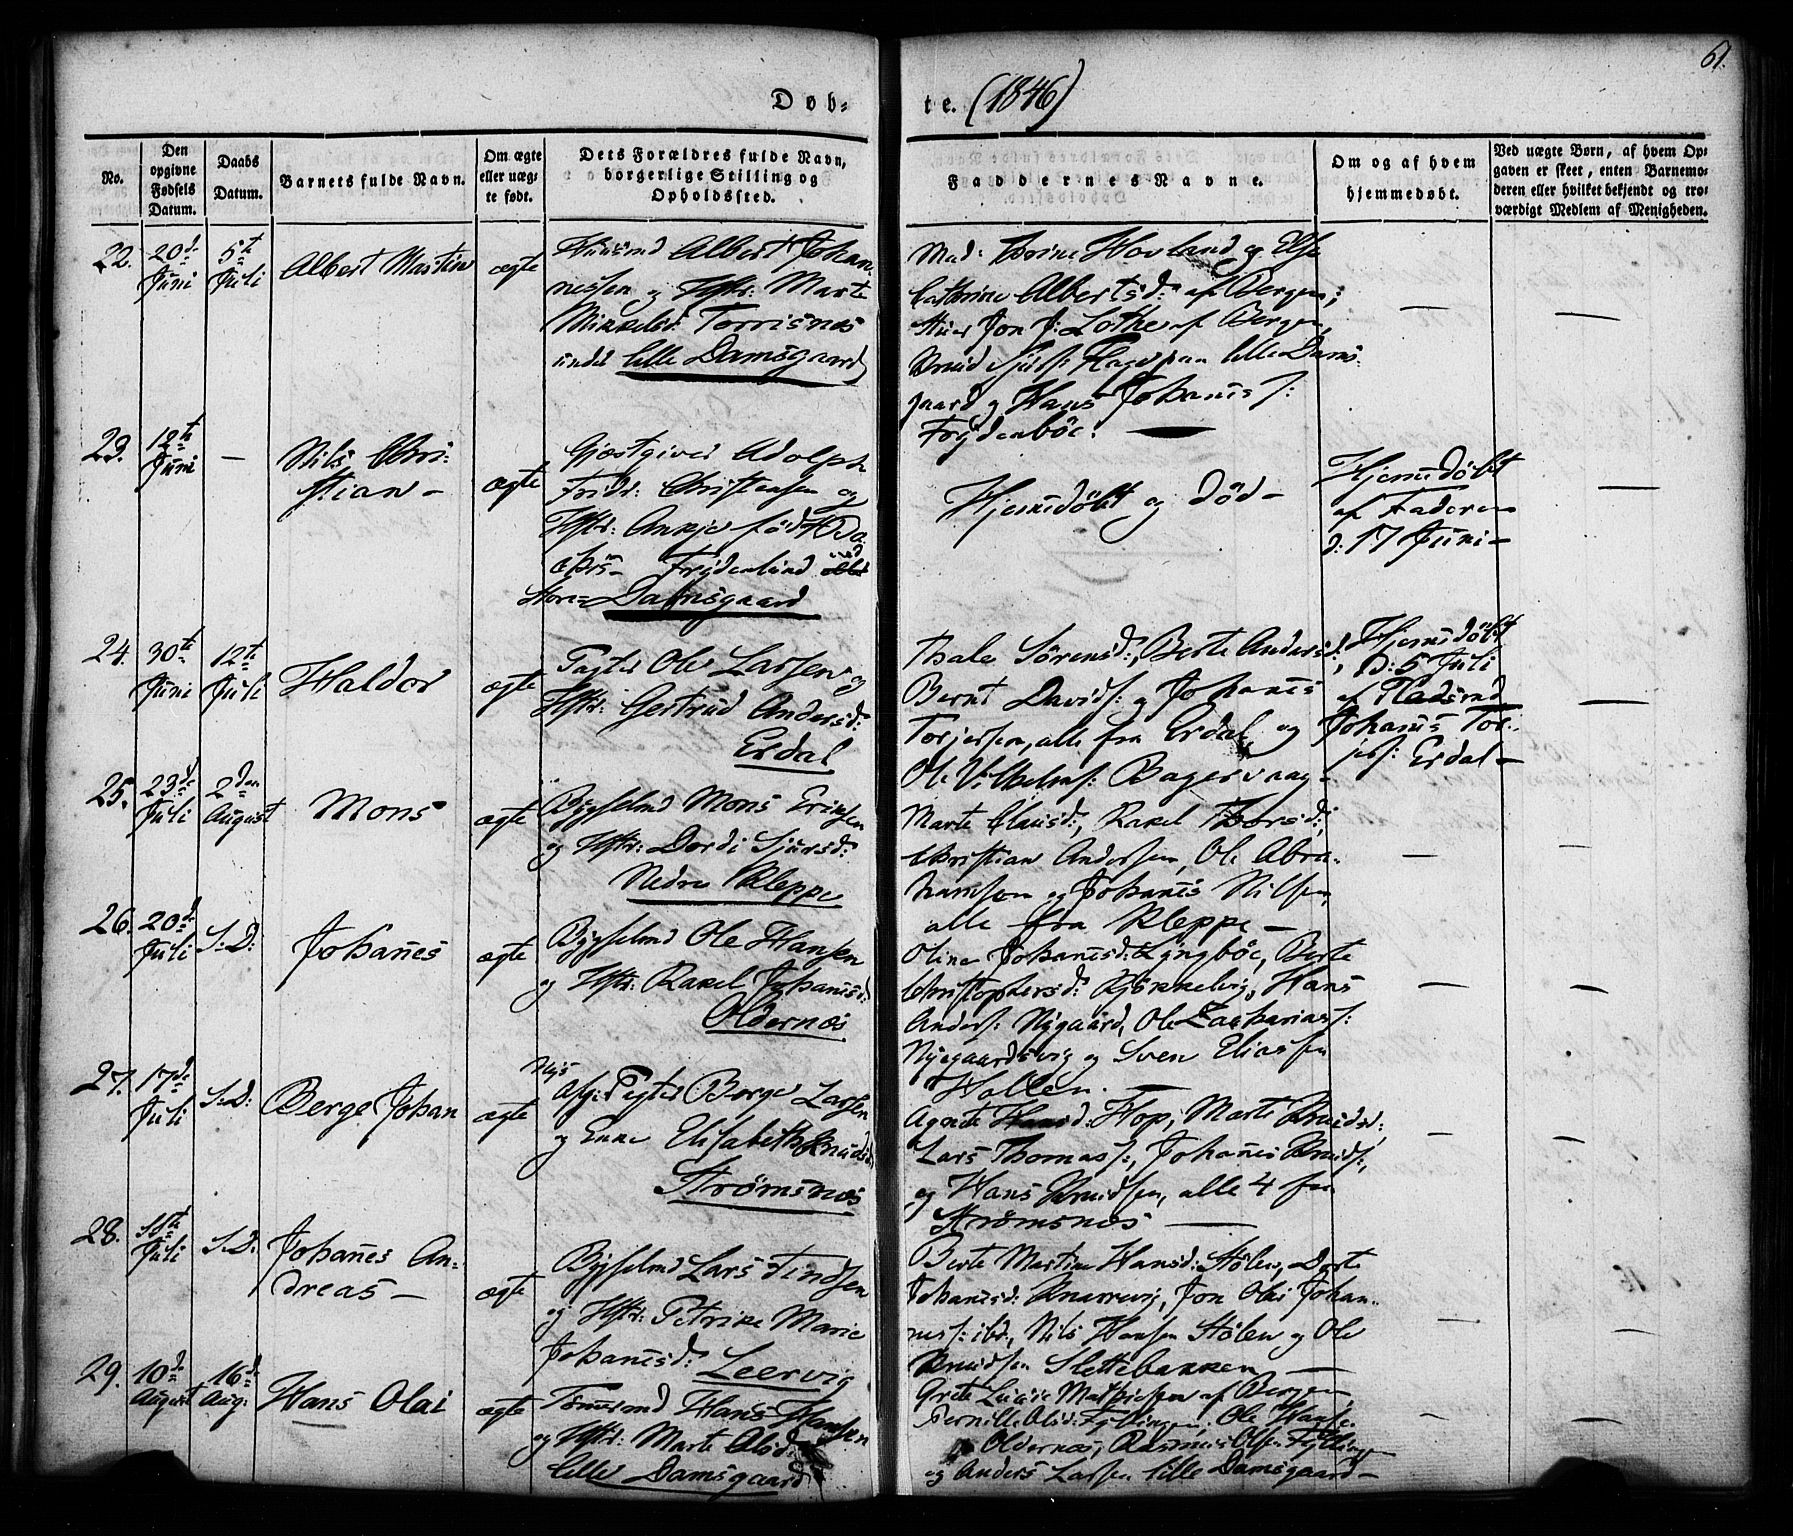 61.
Døb-
te. (1846)
No.
Den
opgivne
Fødsels
Datum.
Daabs
Datum.
Barnets fulde Navn.
Om ægte
eller uæg-
te født.
Dets Forældres fulde Navn,
borgerlige Stilling og
Opholdssted.
Faddernes Navne.
Om og af hvem
hjemmedøbt.
Ved uægte Børn, af hvem Op-
gaven er skeet, enten Barnemo-
deren eller hvilket bekjendt og tro-
værdigt Medlem af Menigheden.
22.
20d
Juni
5te
Juli
Albert Martin
ægte
Huusmd Albert Johan-
nessen og Hstr: Marte
Mikkelsd: Torrisnæs
under lille Damsgaard
Mad: Thrine Hovland og Else
Cathrine Albertsd: af Bergen;
Jon J: Lothe af Bergen,
Knud Sjurs: paa lille Dams-
gaard og Hans Johannes:
Frydenböe. —
—
—
23.
12te
Juni
—
Nils Chri-
stian —
ægte
Gjæstgiver Adolph
Fridr: Christensen og
Hstr: Ankje født Da
Frydenlund ved
Store Damsgaard
Hjemmedöbt og död —
Hjemmedöbt
af Faderen
d: 17 Juni —
—
24.
30te
Juni
12te
Juli
Haldor
ægte
Pagter Ole Larsen og
Hstr: Gertrud Andersd:
Erdal
Thale Sörensd:, Berte Andersd:,
Bernt Davids: og Johannes
Torjersen, alle fra Erdal, og
Ole Vilhelms: Bagervaag —
Hjemmedöbt
D: 5 Juli
af Pladsmd
Johannes Tor-
jers: Erdal —
—
25.
23d
Juli
2den
August
Mons
ægte
Bygselmd Mons Eriksen
og Hstr: Dordi Sjursd:
Nedre Kleppe
Marte Clausd:, Rakel Thorsd:,
Christian Andersen, Ole Abra-
hamsen og Johannes Nilsen,
alle fra Kleppe —
—
—
26.
20d
Juli
S: D:
Johannes
ægte
Bygselmd Ole Hansen
og Hstr: Rakel Johannesd:
Oldernæs
Oline Johannesd: Lyngböe, Berte
Christophersd: Kjökkelvig, Hans
Anders: Nygaard, Ole Zacharias:
Nygaardsvig og Sven Eliassen
Hollen. —
—
—
27.
17de
Juli
S: D:
Berge Johan
ægte
Pagter Berge Larsen
og Enke Elisabeth Knudsd:
Strømsnæs
Agnete Hansd: Hop, Marte Knudsd:,
Lars Thomas:, Johannes Knuds:,
og Hans Knudsen, alle 4 fra
Strömsnæs —
—
—
28.
Juli
S: D:
Johannes An-
dreas —
ægte
Bygselmd Lars Findsen
og Hstr: Petrike Marie
Johannesd: Leervig
Berte Martine Hansd: Stölen, Dorte
Johannesd: Knarrevig, Jon Olai Johan-
nes: ibd., Nils Hansen Stölen og Ole
Knudsen Slettebakken —
—
—
29.
10de
August
16de
Aug:
Hans Olai
ægte
Tömmermd Hans Hansen
og Hstr: Marte Olsd:
lille Damsgaard
Grete Lucie Mathiesen af Bergen,
Pernille Olsd: Fyllingen, Ole Hans:
Oldernæs, Rasmus Olsen Fyllingen
og Anders Larsen lille Damsgaard —
—
—